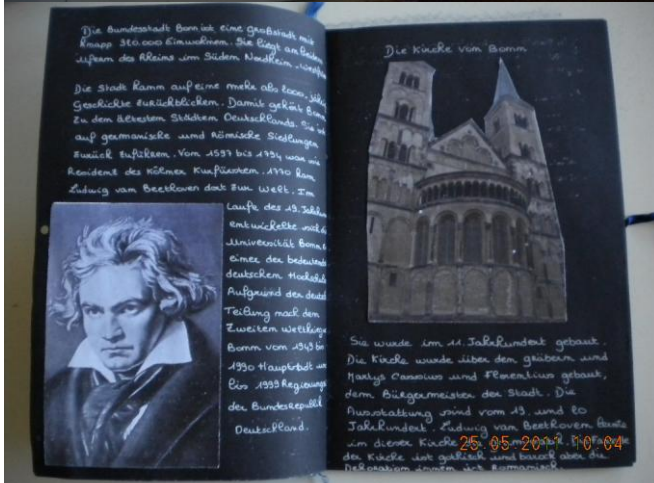 Die Bundesstadt Bonn ist eine Großstadt mit
Knapp 320.000 Einwohnern. Sie liegt an beiden
Ufern des Rheins im Süden Nordhein-
Die Stadt kann auf eine mehr als 2000-
Geschichte zurückblicken. Damit gehört Bonn
zu den ältesten Städten Deutschlands. Sie ist
auf germanische und Römische Siedlungen
zurück zuführen. Vom 1597 bis 1794 war sie
Residenz des Kölner Kurfürsten. 1770 kam
Ludwig van Beethoven dort zur Welt. Im
Laufe des 19. Jahrhun
entwickelte sich di
Universität Bonn
einer der bedeutends
deutschen Hochschule
Aufgrund der deutsc
Teilung nach dem
Zweiten Weltkrieg
Bonn vom 1949 bis
1990 Hauptstadt un
bis 1999 Regierungs
der Bundesrepublik
Deutschland.
Die Kirche von Bonn
Sie wurde im 11. Jahrhundert gebaut.
Die Kirche wurde über den gräbern und
Martys Cassius und Florentius gebaut,
dem Bürgermeister der Stadt. Die
Ausstattung sind vom 19. und 20
Jahrhundert. Ludwig van Beethoven
in dieser Kirche
der Kirche ist gothisch und barock aber die
Dekoration innen ist Romanisch.
25 05 2011 10:04